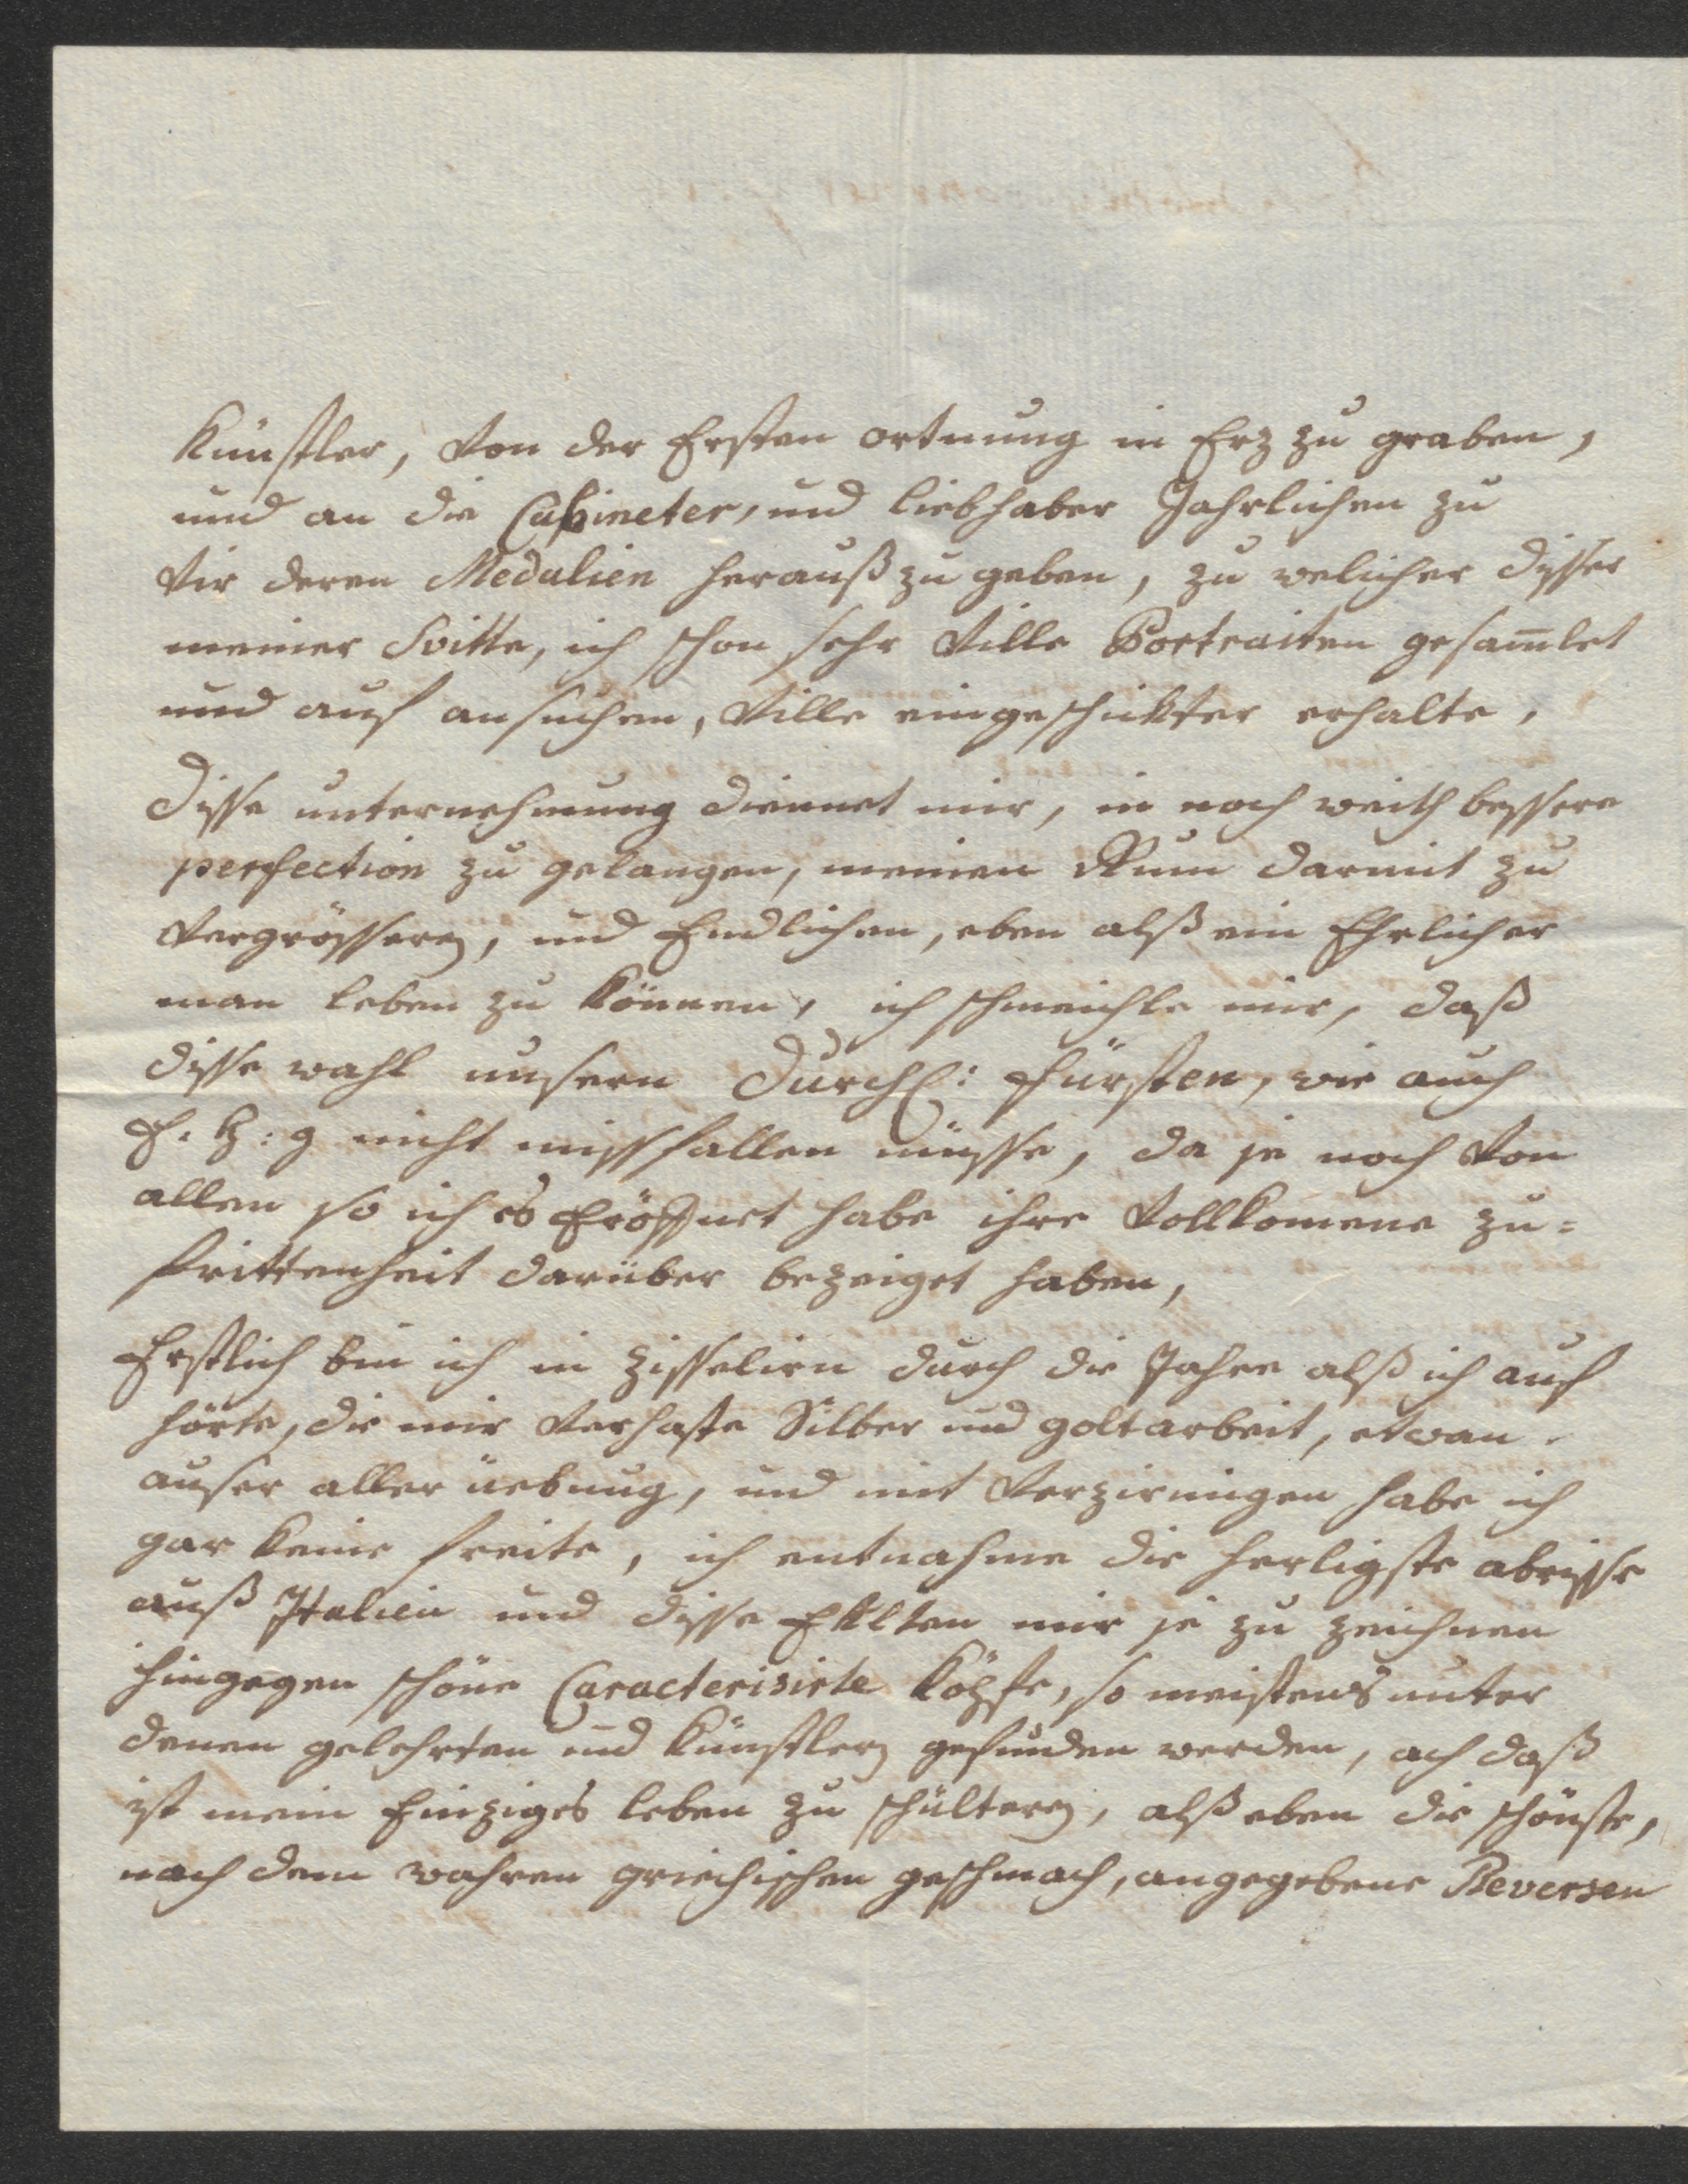 Künstler, von der Ersten ortnung in Erz zu graben,
und an die Cabineter, und liebhaber Jahrlichen zu
vir deren Medalien herauß zu geben, zu welicher disser
meiner Svitte, ich schon sehr ville Portraiten gesam̅let
und auf ansuchen, ville eingeschikter erhalte,
disse unternehmung diennet mir, in noch weith bessere
perfection zu gelangen, meinen Rum darmit zu
vergrössern, und Endlichen, eben alß ein Ehrlicher
man leben zu können, ich schmeichle mir, daß
disse wahl unsern Durchl: Fürsten, wie auch
nicht missfallen müsse, da je noch von
allen so ich es Eröffnet habe ihre vollkomene zu=
frittenheit darüber bezeiget haben,
Erstlich bin ich in zisselirn durch die Jahre alß ich auf
hörte, die mir verhaste Silber und goltarbeit, etwan
auser aller üebung, und mit verzirungen habe ich
gar keine freite, ich entnahme die herligste abrisse
auß Italien und disse Eklten mir je zu zeichnen
hingegen schöne Caracterisirte Köpfe, so meistens unter
denen gelehrten und Künstlern gefunden werden, ach daß
ist mein Einziges leben zu schültern, alß eben die schönste,
nach dem wahren griechischen geschmach, angegebene Reversen